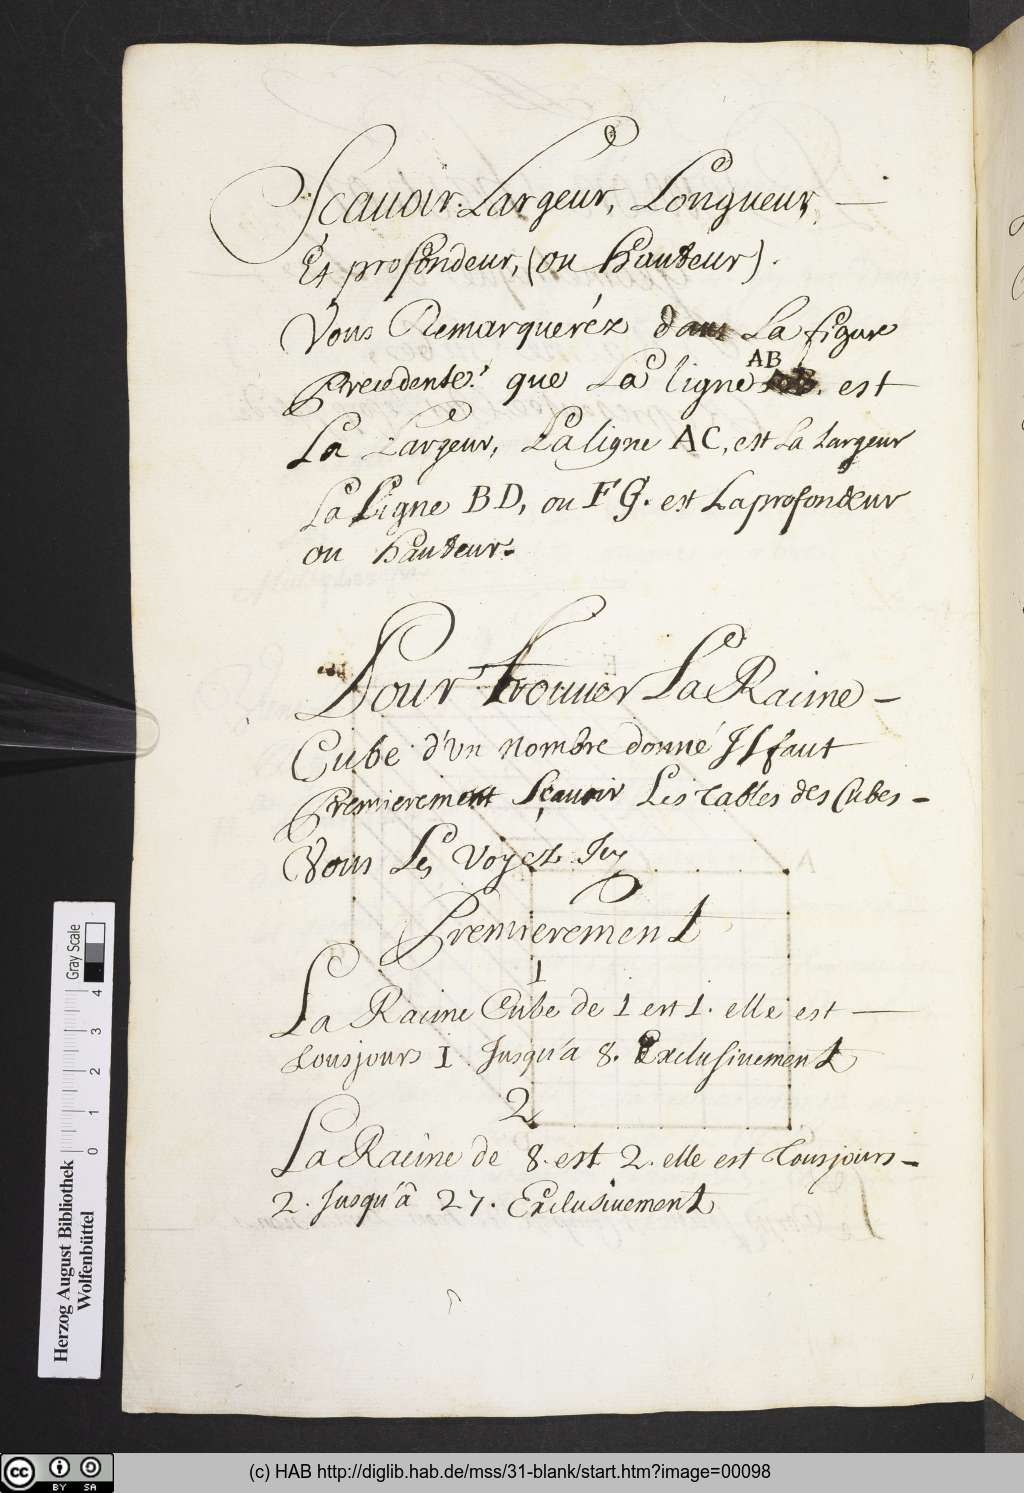 Sçauoir. Largeur, Longueur, —
Et profondeur, (ou hauteur).
Vous Remarqueréz dans La figure
Precedente. que La ligne AB est
La Largeur, La ligne AC, est La Largeur
La Ligne BD, ou FG. est La profondeur
ou hauteur.
Pour trouuer La Racine —
Cube d'un nombre donné Il faut
Premierement Sçauoir Les Tables des Cubes —
Vous Les Voyez Icy
Premierement
1
La Racine Cube de 1 est 1. elle est —
Tousjours 1 Jusqu'a 8. Exclusiuement
2
La Racine de 8. est 2. elle est Tousjours —
2. Jusqu'â 27. Exclusiuement
Gray Scale
0 1 2 3 4
Herzog August Bibliothek
Wolfenbüttel
cc BY SA
(c) HAB http://diglib.hab.de/mss/31-blank/start.htm?image=00098